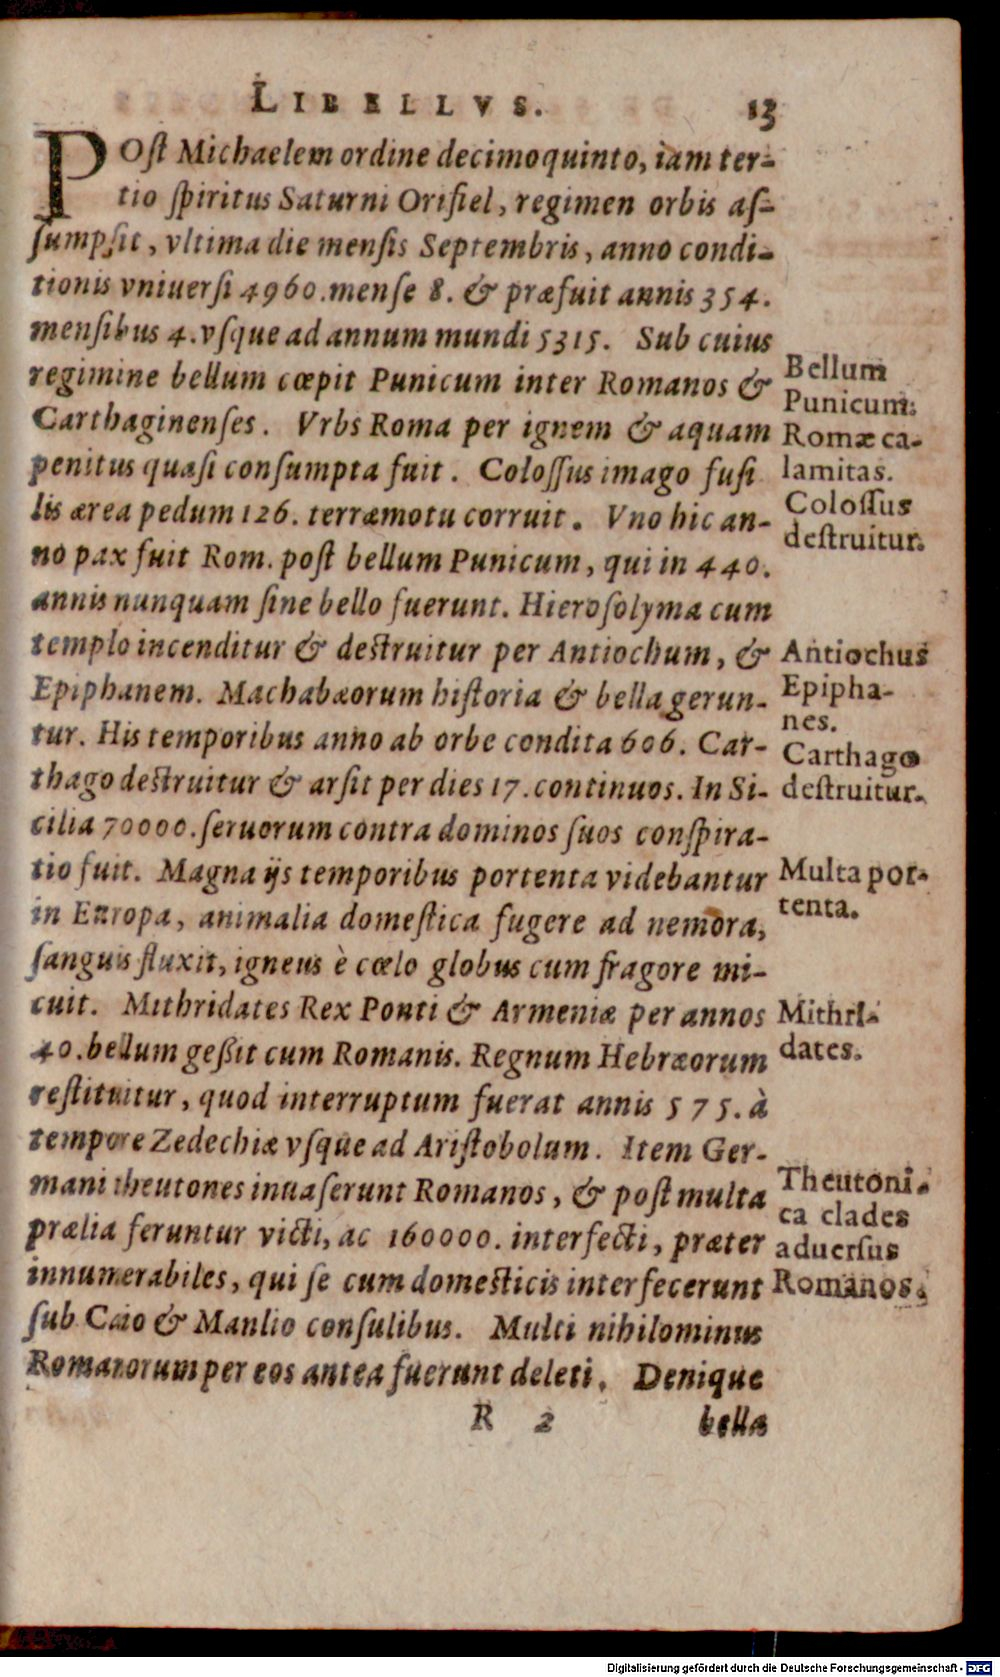 LIBELLVS. 13
POſt Michaelem ordine decimoquinto, iam ter-
tio ſpiritus Saturni Orifiel, regimen orbis aſ-
ſumpſit, vltima die menſis Septembris, anno condi-
tionis vniuerſi 4960. menſe 8. & præfuit annis 354.
menſibus 4. vſque ad annum mundi 5315. Sub cuius
regimine bellum cœpit Punicum inter Romanos &
Carthaginenſes. Vrbs Roma per ignem & aquam
penitus quaſi conſumpta fuit. Coloſſus imago fuſi
lis ærea pedum 126. terræmotu corruit. Vno hic an-
no pax fuit Rom. poſt bellum Punicum, qui in 440.
annis nunquam ſine bello fuerunt. Hieroſolyma cum
templo incenditur & deſtruitur per Antiochum, &
Epiphanem. Machabæorum hiſtoria & bella gerun-
tur. His temporibus anno ab orbe condita 606. Car-
thago deſtruitur & arſit per dies 17. continuos. In Si-
cilia 70000. ſeruorum contra dominos ſuos conſpira-
tio fuit. Magna ijs temporibus portenta videbantur
in Europa, animalia domeſtica fugere ad nemora,
ſanguis fluxit, igneus è cœlo globus cum fragore mi-
cuit. Mithridates Rex Ponti & Armeniæ per annos
40. bellum geßit cum Romanis. Regnum Hebræorum
reſtituitur, quod interruptum fuerat annis 575. à
tempore Zedechiæ vſque ad Ariſtobolum. Item Ger-
mani theutones inuaſerunt Romanos, & poſt multa
prælia feruntur victi, ac 160000. interfecti, præter
innumerabiles, qui ſe cum domeſticis interfecerunt
ſub Caio & Manlio conſulibus. Multi nihilominus
Romanorum per eos antea fuerunt deleti. Denique
R 2 bella
Bellum
Punicum.
Romæ ca-
lamitas.
Coloſſus
deſtruitur.
Antiochus
Epipha-
nes.
Carthago
deſtruitur.
Multa por-
tenta.
Mithri-
dates.
Theutoni-
ca clades
aduerſus
Romanos.
Digitalisierung gefördert durch die Deutsche Forschungsgemeinschaft - DFG